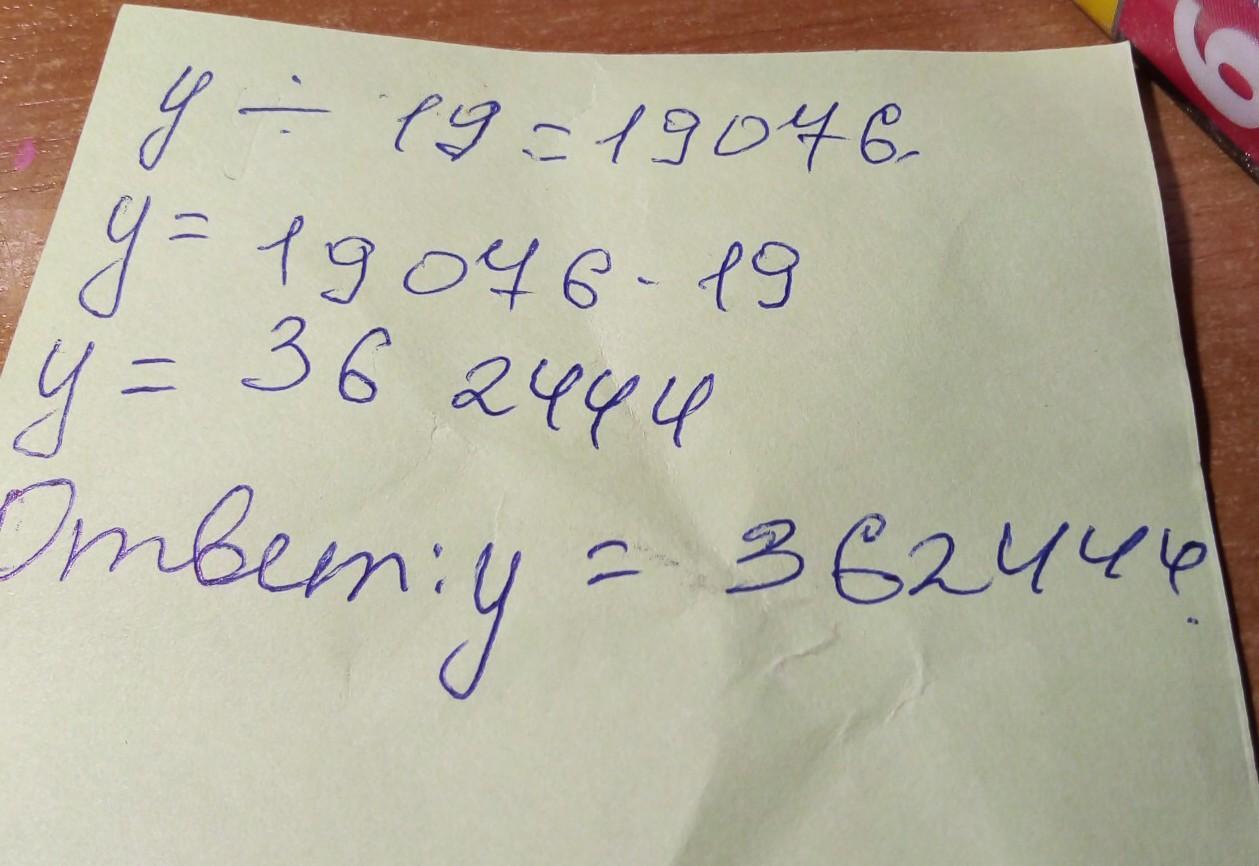 y ÷ 19 = 19076.
y = 19076 · 19
y = 36 2444
Ответ: y = 362444.
6